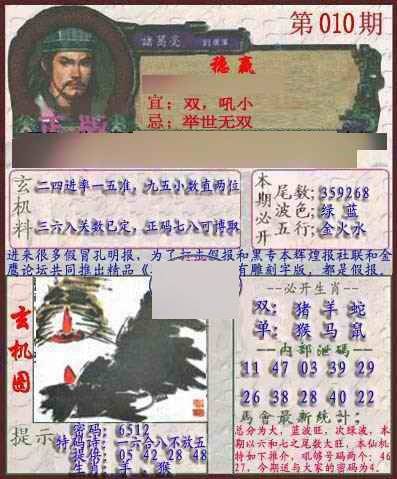 第010期
諸葛亮
稳赢
宜：双，吼小
忌：举世无双
正版
玄机料
二四进率一五准，九五小数直两位
三六八关数已定，正码七八可博取
本期必开
尾数；359268
波色；绿 蓝
五行；金火水
进来很多假冒孔明报，为了打击假报和黑专本辉煌报社联和金
鹰论坛共同推出精品《
有雕刻字版，都是假报。
玄机图
--必开生肖--
双：猪 羊 蛇
单：猴 马 鼠
--内部泄码--
11 47 03 39 29
26 38 28 40 22
马會最新统计：
总分为大，蓝波旺，次绿波，本
期以六和七之尾数大旺，本仙机
特如下推介，吼够号码两个：46
27，今期送与大家的密码为4。
提示
密码：6512
特码诗：一六合八不放五
提倍：05 42 28 48
生肖：羊、猴